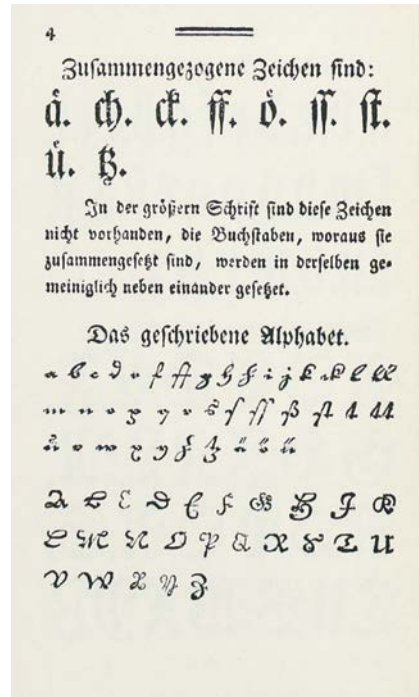 4
Zusammengezogene Zeichen sind:
å. ch. ck. ff. o̊. ſſ. ſt.
ů. tz.
In der größern Schrift sind diese Zeichen
nicht vorhanden, die Buchstaben, woraus sie
zusammengesetzt sind, werden in derselben ge-
meiniglich neben einander gesetzet.
Das geschriebene Alphabet.
a b c d e f ff g h i j k ck l ll
m n o p q r s ſ ſſ ß ſt t tt
u v w x y z tz ä ö ü
A B C D E F G H J K
L M N O P Q R S T U
V W X Y Z